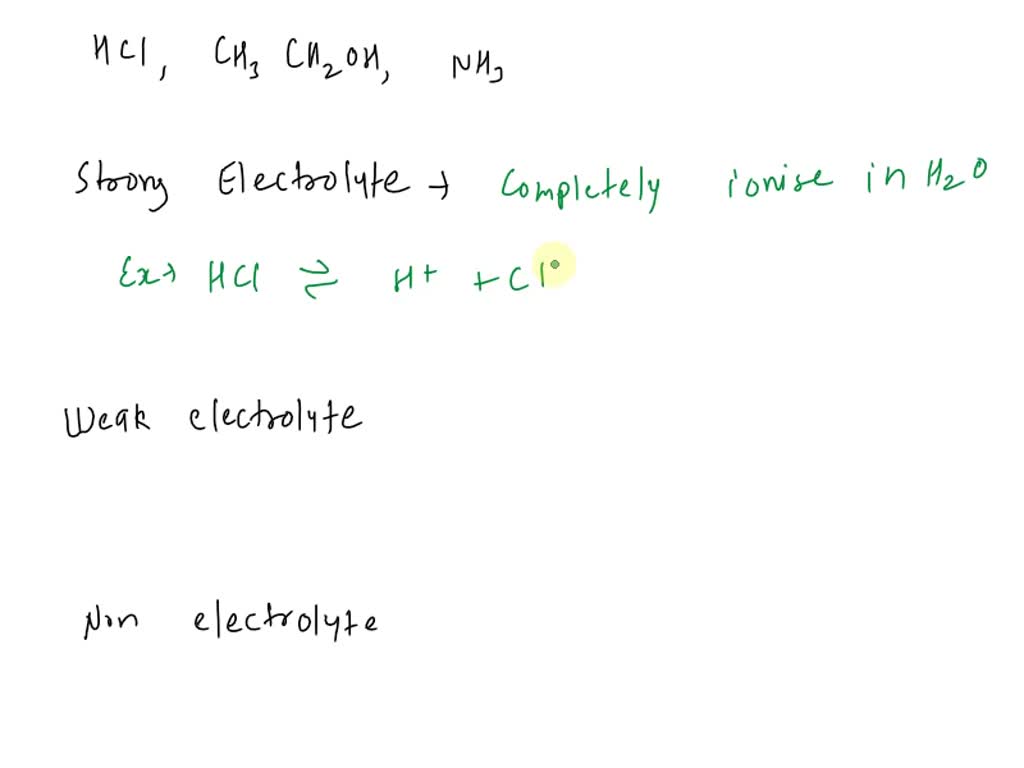 HCl, CH₃ CH₂OH, NH₃
Strong Electrolyte → Completely ionise in H₂O
Ex→ HCl ⇌ H⁺ + Cl
Weak electrolyte
Non electrolyte